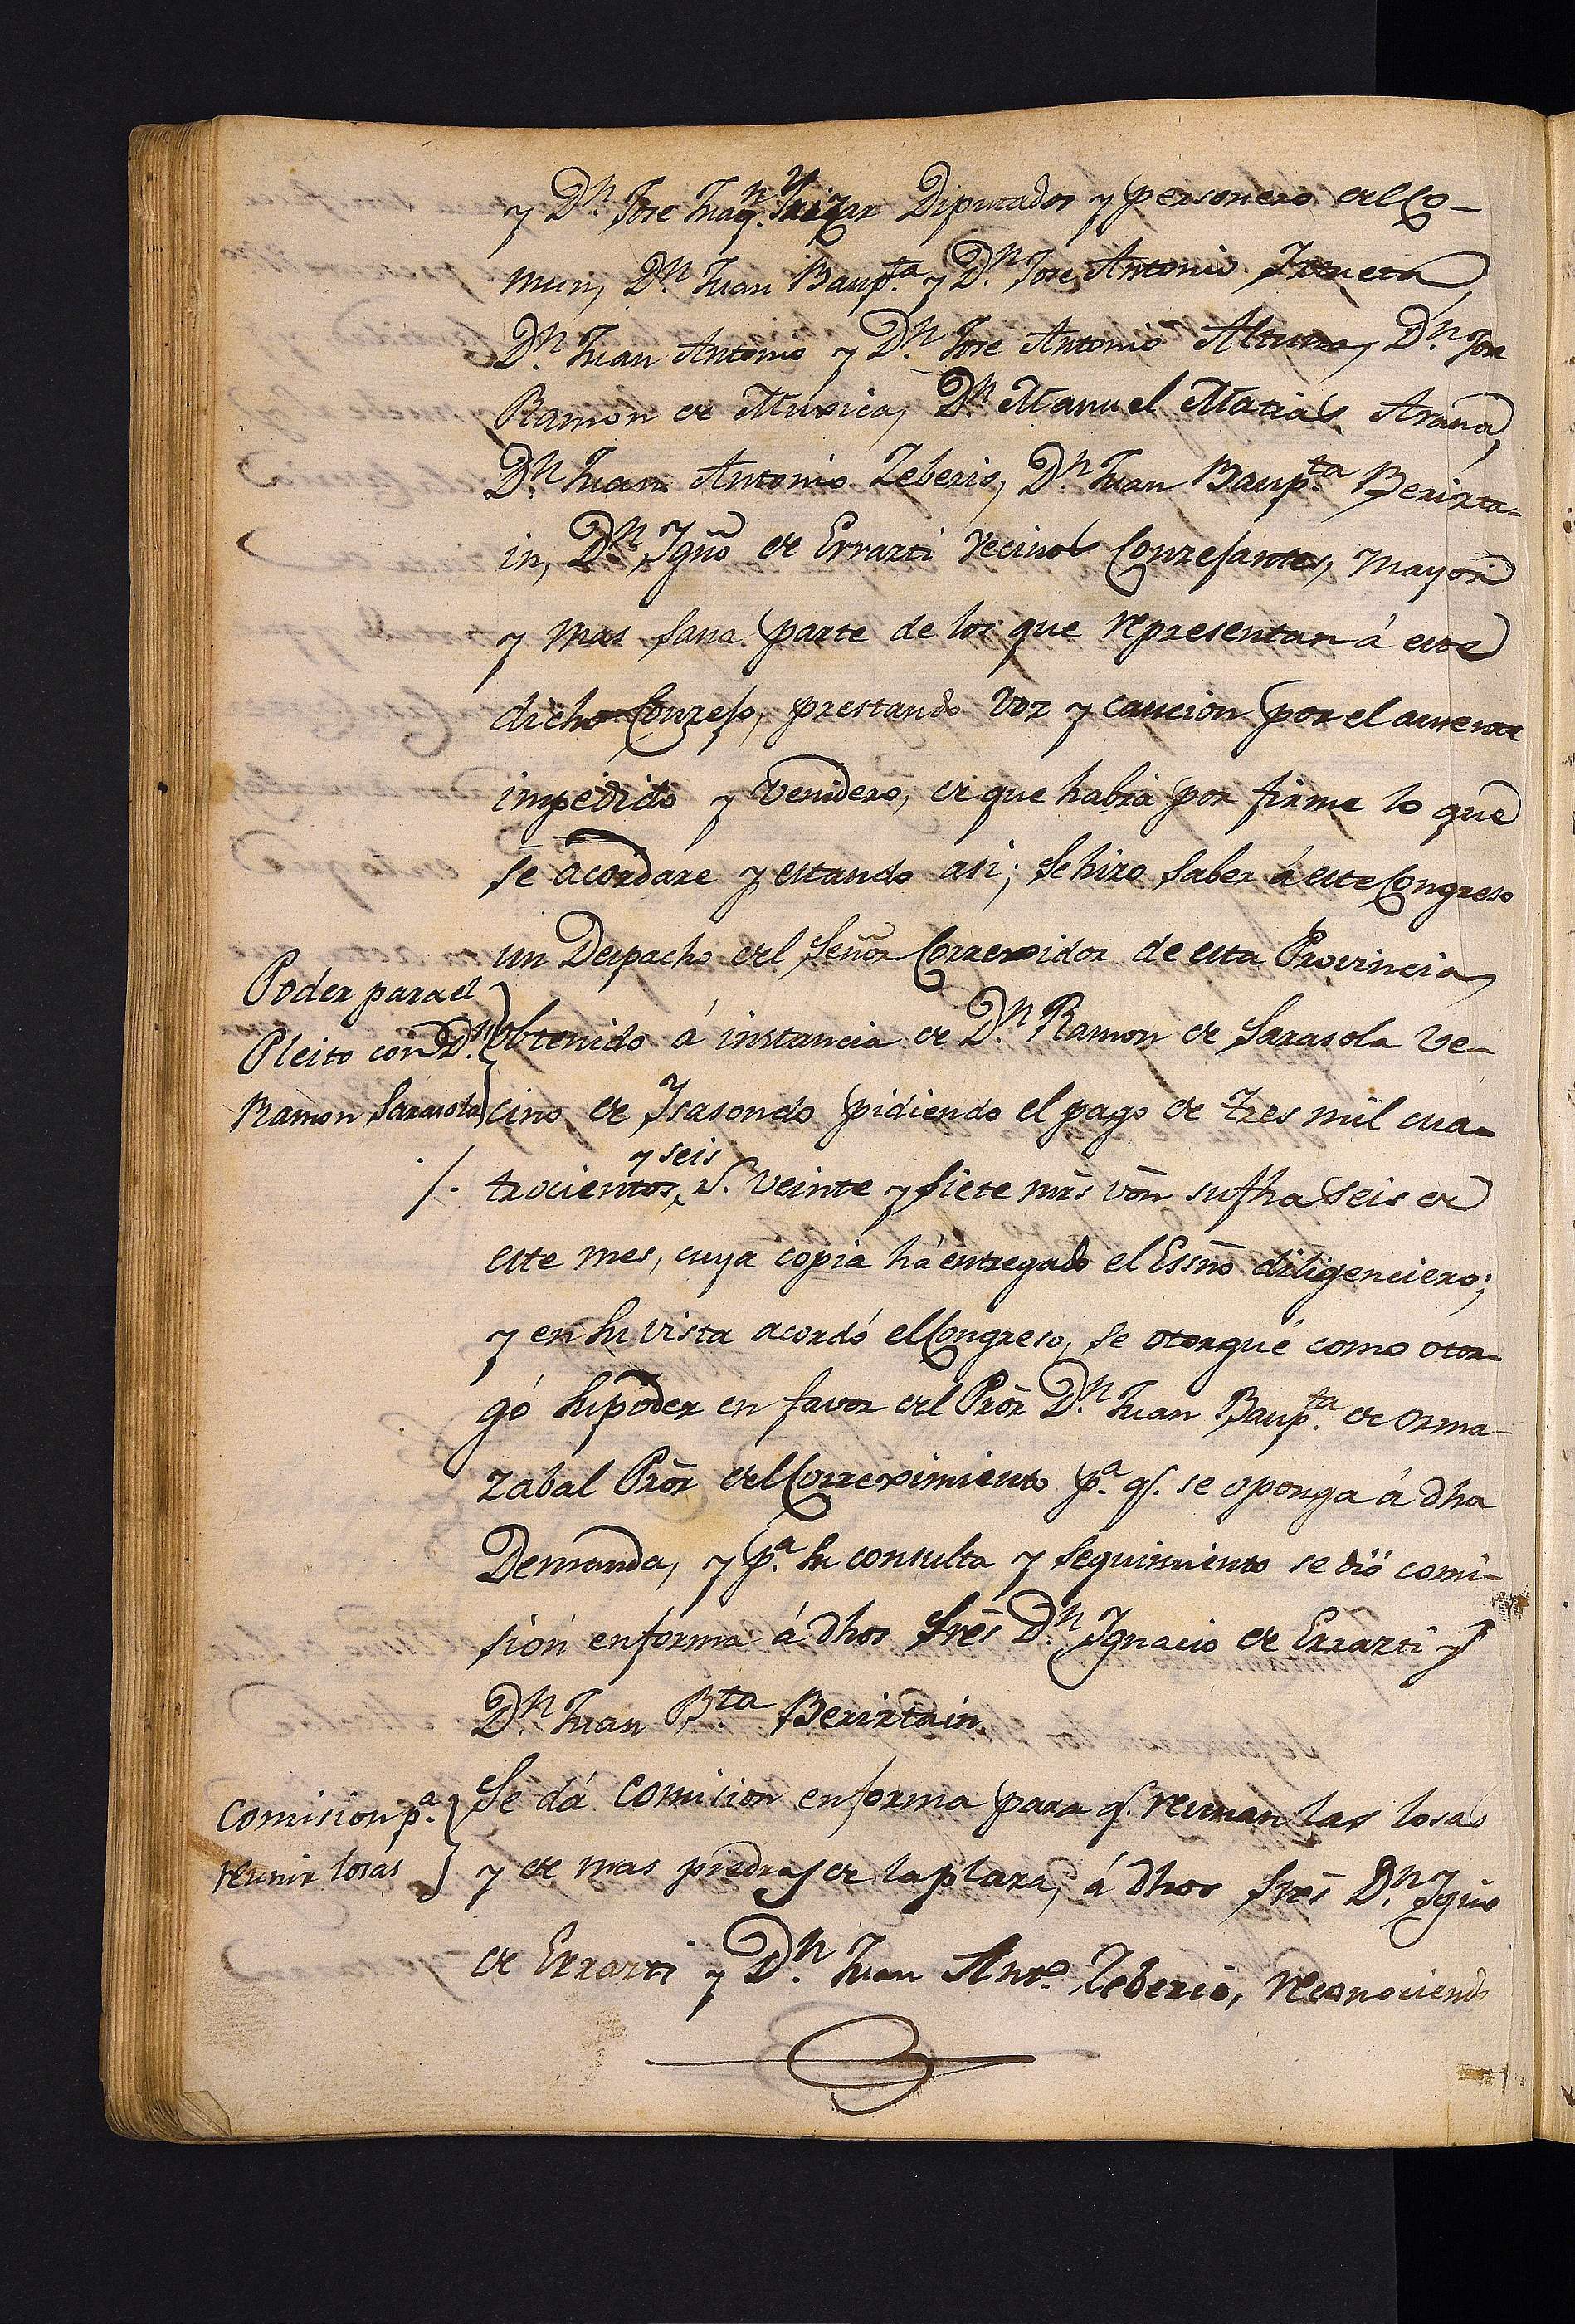 y Dn. Jose Juaqn. Irizar Diputados y personero del Co-
mun, Dn. Juan Baupta. y Dn. Jose Antonio
Dn. Juan Antonio y Dn. Jose Antonio Altuna, Dn. Jose
Ramon de Muxica, Dn. Manuel Matias Arana,
Dn. Juan Antonio Zeberio, Dn. Juan Baupta. Berizta-
in, Dn. Igño de Errazti vecinos Conzejantes, mayor
y mas sana parte de los que representan á este
dicho Conzejo, prestando voz y caucion por el ausente
impedido y venidero, de que habra por firme lo que
se acordare y estando asi; se hizo saber á este Congreso
un Despacho del Señor Correxidor de esta Provincia,
Poder para el
Pleito con Dn.
Ramon Sarasola
obtenido á instancia de Dn. Ramon de Sarasola ve-
cino de Isasondo pidiendo el pago de tres mil cua-
y seis
/. trocientos, rs. veinte y siete mrs von su fha seis de
este mes, cuya copia há entregado el Essno diligenciero;
y en su vista acordó el Congreso, se otorgué como otor-
gó su poder en favor del Pror Dn. Juan Baupta. de Orma-
zabal Pror del Correximiento pa. q. se oponga á dha
Demanda, y pa. su consulta y seguimiento se dió comi-
sión en forma á dhos Sres Dn. Ignacio de Errazti y
Dn. Juan Bta Beriztain.
Comision pa.
reunir losas
Se dá comision en forma para q. reunan las losas
y de mas piedras de la plaza, á dhos Sres Dn. Igño
de Errazti y Dn. Juan Anto. Zeberio, reconociendo